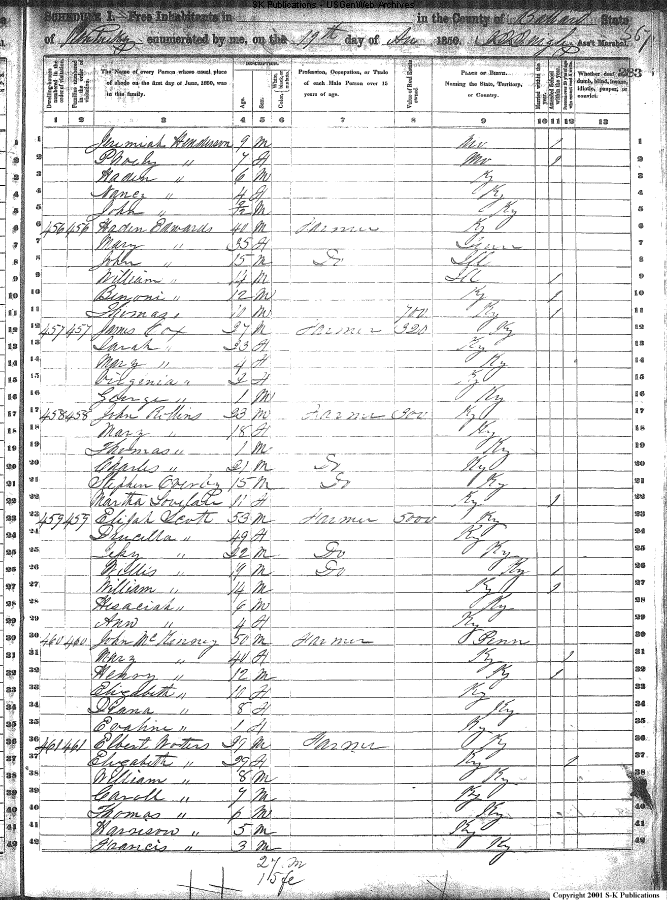 S-K Publications - USGenWeb Archives
SCHEDULE I. Free Inhabitants in in the County of Ballard State
of Kentucky enumerated by me, on the 19th day of 1850. Ass't Marshal. 367
383
DESCRIPTION.
Dwelling-houses numbered in the order of visitation. Families numbered in the order of visitation. The Name of every Person whose usual place of abode on the first day of June, 1850, was in this family. Age. Sex. Color Profession, Occupation, or Trade of each Male Person over 15 years of age. Value of Real Estate owned PLACE OF BIRTH. Naming the State, Territory, or Country. Married within the year. Attended School within the year. Whether deaf and dumb, blind, insane, idiotic, pauper, or convict.
1 2 3 4 5 6 7 8 9 10 11 12 13
1 Jeremiah Henderson 9 M Mo 1 1
2 Phoeby " 7 f Mo 1 2
3 Hadin " 6 M Ky 3
4 Nancy " 4 f Ky 4
5 John " M Ky 5
6 456 456 Hadin Edwards 40 M Farmer Ky 6
7 Mary " 35 f Tenn 7
8 John " 15 M Do Ill 8
9 William " 14 M Ill 1 9
10 Benjoni " 12 M Ky 1 10
11 Thomas " 10 M 700 Ky 1 11
12 457 457 James Cox 27 M Farmer 320 Ky 12
13 Sarah " 23 f Ky 13
14 Mary " 4 f Ky 14
15 Virgenia " 2 f Ky 15
16 George " 1 M Ky 16
17 458 458 John Rollins 23 M Farmer 300 Ky 17
18 Mary " 18 f Ky 18
19 Thomas " 1 M Ky 19
20 Charles " 21 M Do Ky 20
21 Stephen 15 M Do Ky 21
22 Martha Lovelace 11 f Ky 1 22
23 459 459 Elijah Scott 53 M Farmer 5000 Ky 23
24 Drucilla " 49 f Ky 24
25 " 22 M Do Ky 25
26 Willis " 19 M Do Ky 1 26
27 William " 14 M Ky 1 27
28 Hesaciah " 6 M Ky 28
29 Ann " 4 f Ky 29
30 460 460 John McKenney 50 M Farmer Penn 30
31 Mary " 40 f Ky 1 31
32 Henry " 12 M Ky 1 32
33 Elizabeth " 10 f Ky 33
34 Diana " 8 f Ky 34
35 Evaline " 1 f Ky 35
36 461 461 Elbert Wotters 27 M Farmer Ky 36
37 Elizabeth " 29 f Ky 1 37
38 William " 8 M Ky 38
39 Caroll " 7 M Ky 39
40 Thomas " 6 M Ky 40
41 Harrison " 5 M Ky 41
42 Francis " 3 M Ky 42
27 m
15 fe
Copyright 2001 S-K Publications